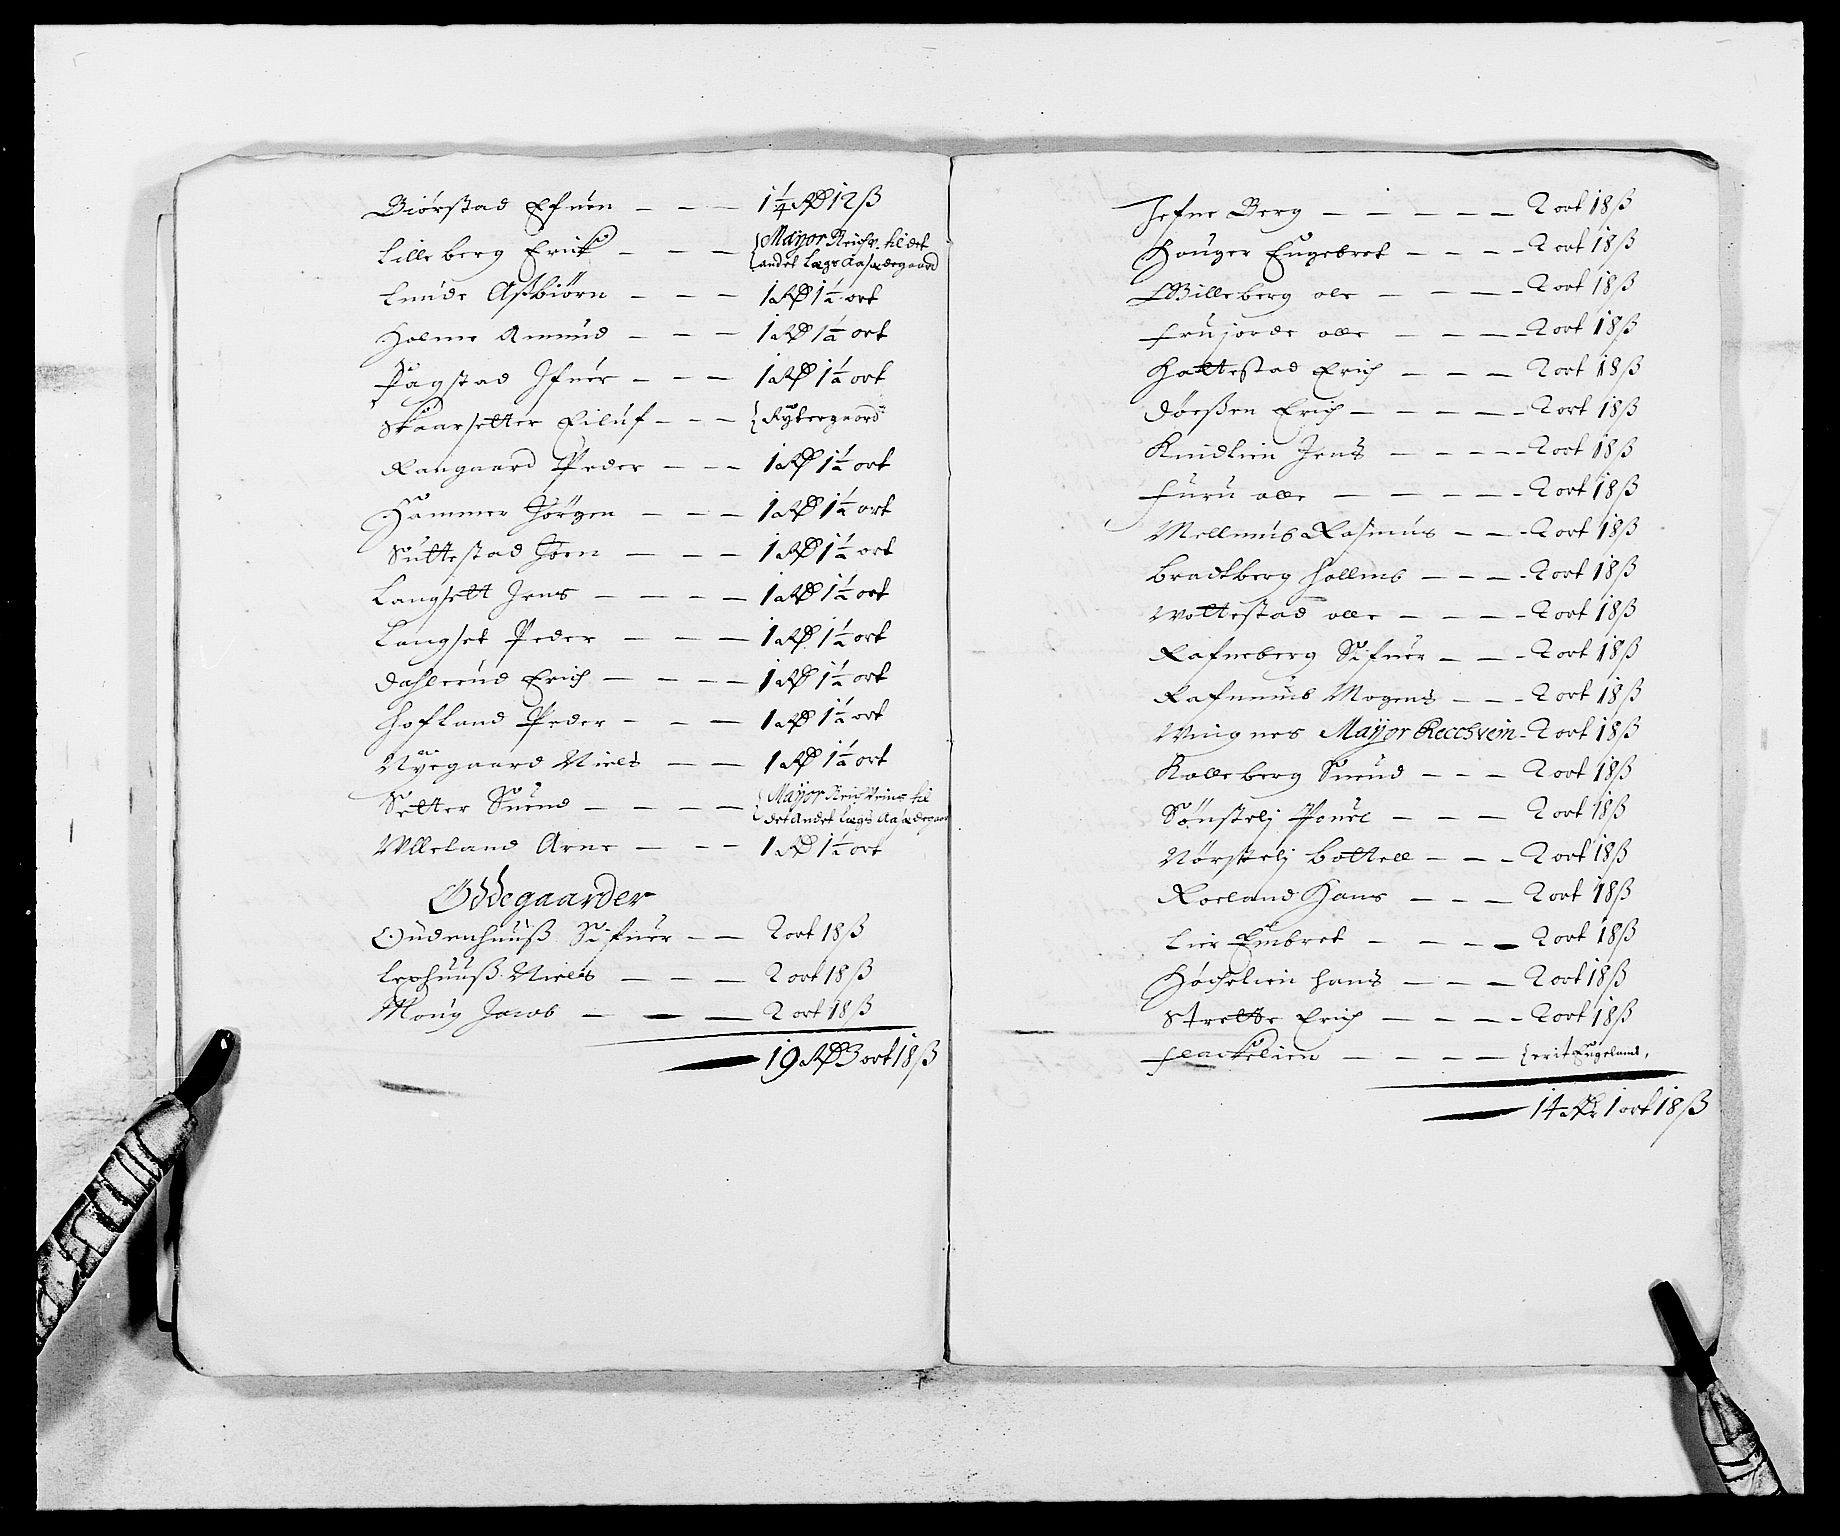 Biørstad Efuen — — — 1 1/4 Rd 12 ß
Lilleberg Erick — — — Mayor Reichv. til det
andet Legs Aasædegaard
Lunde Assbiørn — — — 1 Rd 1 1/2 ort
Holme Amund — — — 1 Rd 1 1/2 ort
Pagstad Ifuer — — — 1 Rd 1 1/2 ort
Skaarsetter Eiluf — — — Rytergaard
Raugaard Peder — — — 1 Rd 1 1/2 ort
Hammer Jørgen — — — 1 Rd 1 1/2 ort
Suttestad Joen — — — 1 Rd 1 1/2 ort
Langsett Jens — — — — 1 Rd 1 1/2 ort
Langset Peder — — — 1 Rd 1 1/2 ort
Dahleeud Erich — — — — 1 Rd 1 1/2 ort
Hofland Peder — — — 1 Rd 1 1/2 ort
Nyegaard Niels — — 1 Rd 1 1/2 ort
Setter Suend — — — — Mayor Reichveins til
det Andet Legs Aasædegaard
Ulleland Arne — — — 1 Rd 1 1/2 ort
Ødegaarder
Gudenhuuß Sifuer — — 2 ort 18 ß
Lephuuß Niels — — — 2 ort 18 ß
Moug Jacob — — — 2 ort 18 ß
19 Rd 3 ort 18 ß
Jefne Berg — — — — — 2 ort 18 ß
Houger Engebret — — — 2 ort 18 ß
Billeberg ole — — — 2 ort 18 ß
Frujorde olle — — — 2 ort 18 ß
Hattestad Erich — — — 2 ort 18 ß
Døeßen Erich — — — — 2 ort 18 ß
Kindlien Jens — — — — 2 ort 18 ß
Furu olle — — — — 2 ort 18 ß
Mellmub Rasmus — — 2 ort 18 ß
Bradtberg Hellmb — — — 2 ort 18 ß
Wottestad olle — — — — 2 ort 18 ß
Rafneberg Sifuer — — 2 ort 18 ß
Rafnmub Mogens — — 2 ort 18 ß
Wingnes Mayor Reechvein 2 ort 18 ß
Kolleberg Suend — — — 2 ort 18 ß
Sønstelj Pouel — — — 2 ort 18 ß
Nørstelj Bottell — — — 2 ort 18 ß
Roeland Hans — — — 2 ort 18 ß
Lier Embret — — — — 2 ort 18 ß
Høchelien Hans — — — 2 ort 18 ß
Strette Erich — — — — 2 ort 18 ß
Flackelien — — — —
14 Rd 1 ort 18 ß